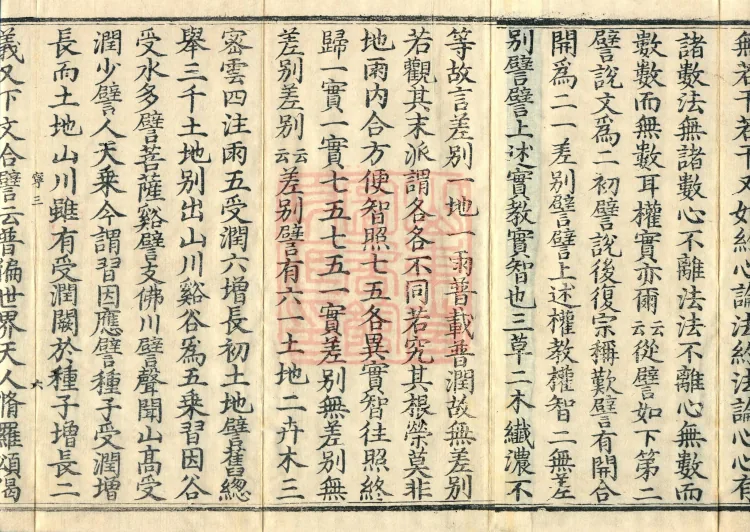 無若干若干又如約心論法約法論心心有
諸數法無諸數心不離法法不離心無數而
數數而無數耳權實亦爾云云從譬如下第二
譬說文為二初譬說後復宗稱歎譬有開合
開為二一差別譬譬上述權教權智二無差
別譬譬上述實教實智也三草二木纖濃不
等故言差別一地一雨普載普潤故無差別
若觀其末派謂各各不同若究其根榮莫非
地雨內合方便智照七五各異實智往照終
歸一實一實七五七五一實差別無差別無
差別差別云云差別譬有六一土地二卉木三
密雲四注雨五受潤六增長初土地譬舊總
舉三千土地別出山川谿谷為五乘習因谷
受水多譬菩薩谿譬支佛川譬聲聞山髙受
潤少譬人天乘今謂習因應譬種子受潤增
長而土地山川雖有受潤關於種子增長二
寧三 六
義又下文合譬云普徧世界天人脩羅頌偈